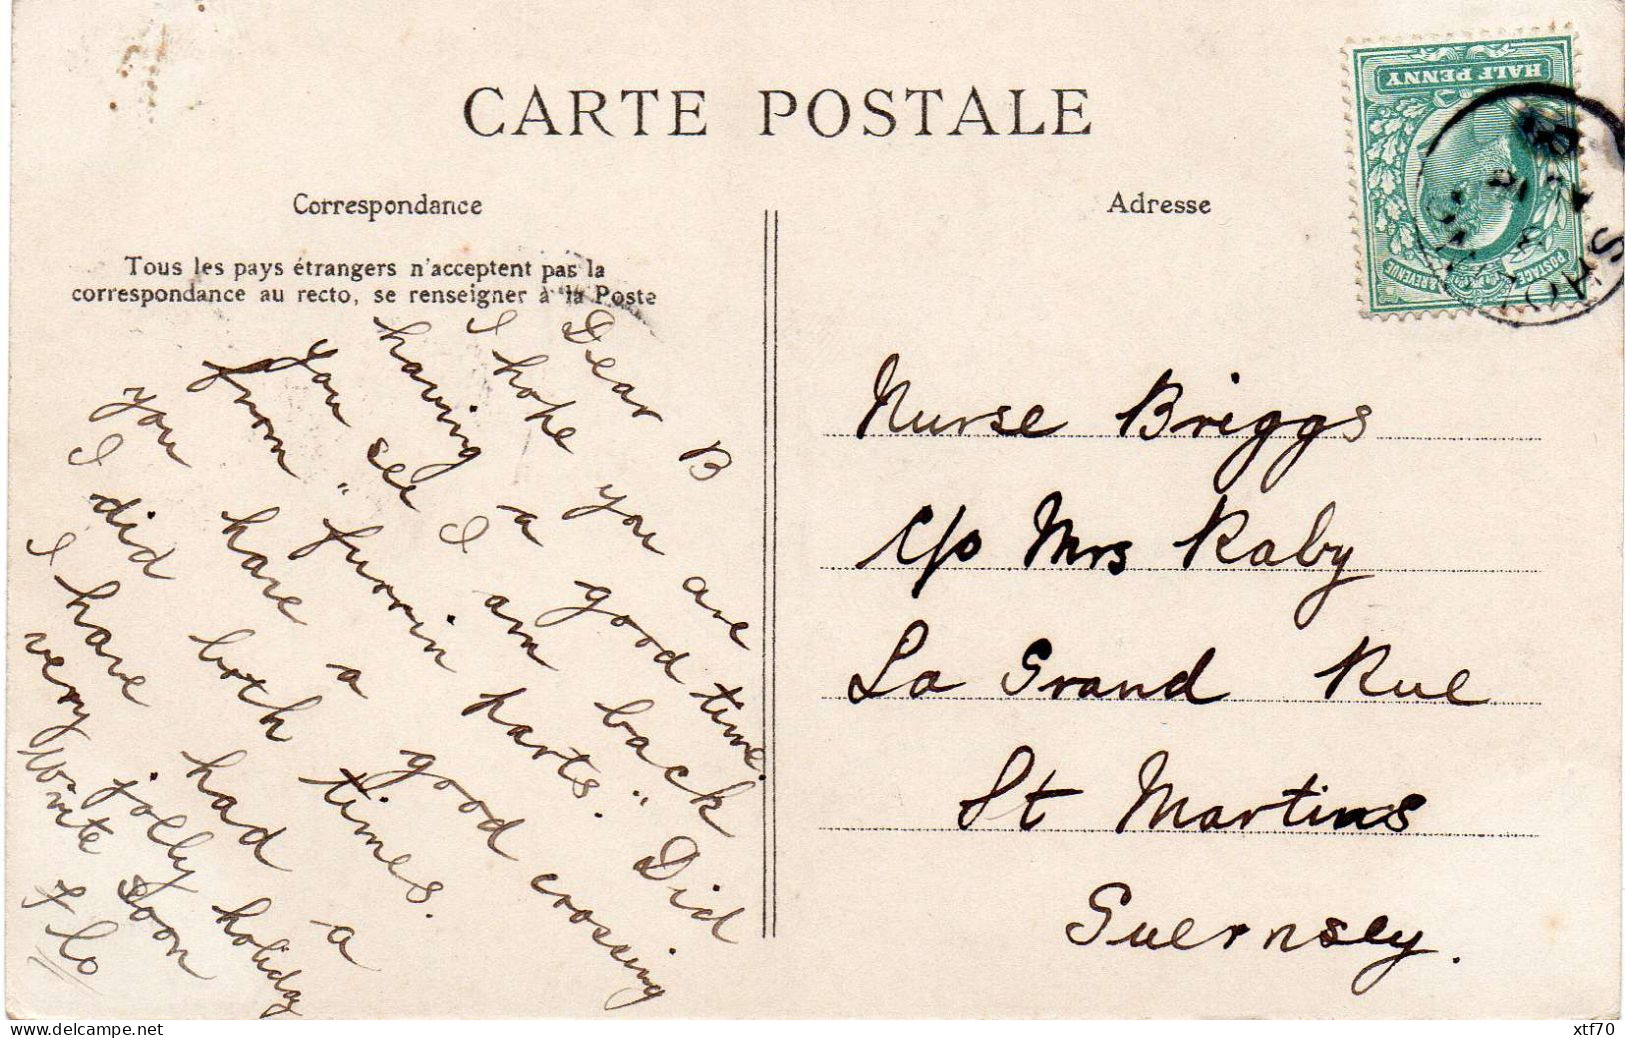 CARTE POSTALE
Correspondance
Adresse
Tous les pays étrangers n'acceptent pas la
correspondance au recto, se renseigner à la Poste
HALF PENNY
POSTAGE & REVENUE
Dear B
I hope you are
having a good time.
You see I am back
from "furrin parts." Did
you have a good crossing
I did both times.
I have had a
very jolly holiday
Write soon
Flo
Nurse Briggs
c/o Mrs Raby
La Grand Rue
St Martins
Guernsey.
www.delcampe.net
xtf70